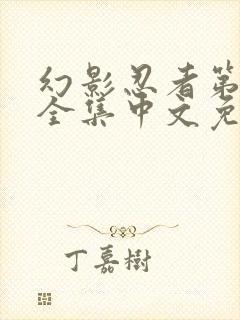 幻影忍者第
全集中文免
丁嘉樹